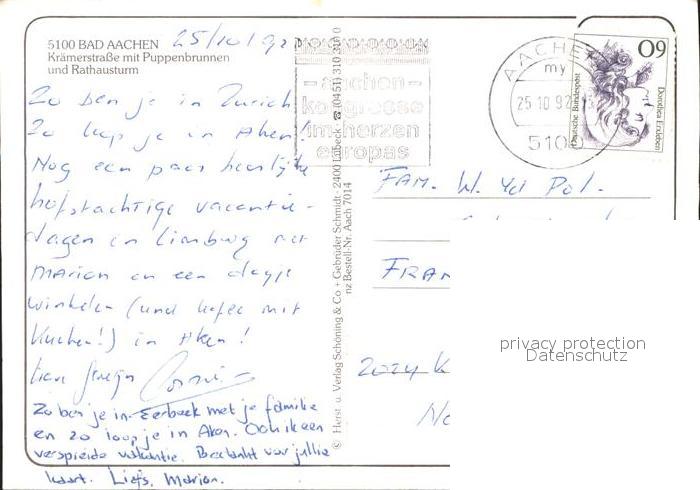 5100 BAD AACHEN 25/10/92
Krämerstraße mit Puppenbrunnen
und Rathausturm
Zo ben je in Zurich
Zo loop je in Aken!
Nog een paar heerlijke
hefstachtige vacantie-
dagen in Limburg met
Marion en een dagje
winkelen (und kafee mit
Kuchen!) in Aken!
Zo ben je in Eerbeek met je familie
en zo loop je in Aken. Ook ik een
verspreide vakantie. Bedankt voor jullie
kaart. Liefs, Marion.
© Herst. u. Verlag Schöning & Co + Gebrüder Schmidt · 2400 Lübeck ☎ (0451) 310 310
nz Bestell-Nr. Aach 7014
- aachen -
kongresse
im herzen
europas
AACHEN
my
25.10.92
510
60
Deutsche Bundespost
Dorothea Erxleben
FAM. W. vd Pol.
FRAN
2024 K
privacy protection
Datenschutz